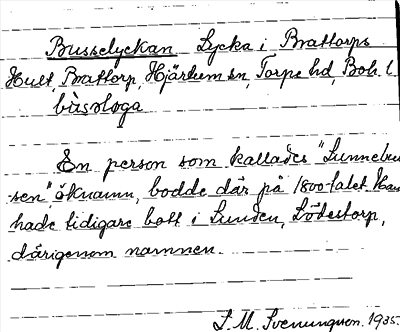 Busselyckan Lycka i Brattorps
Hult, Brattorp, Hjärtum sn, Torpe hd, Boh. l.
En person som kallades "Lunnebu
sen" öknamn, bodde där på 1800-talet. Han
hade tidigare bott i Lunden, Lödestorp,
därigenom namnen.
S. M. Svenungson. 1935.